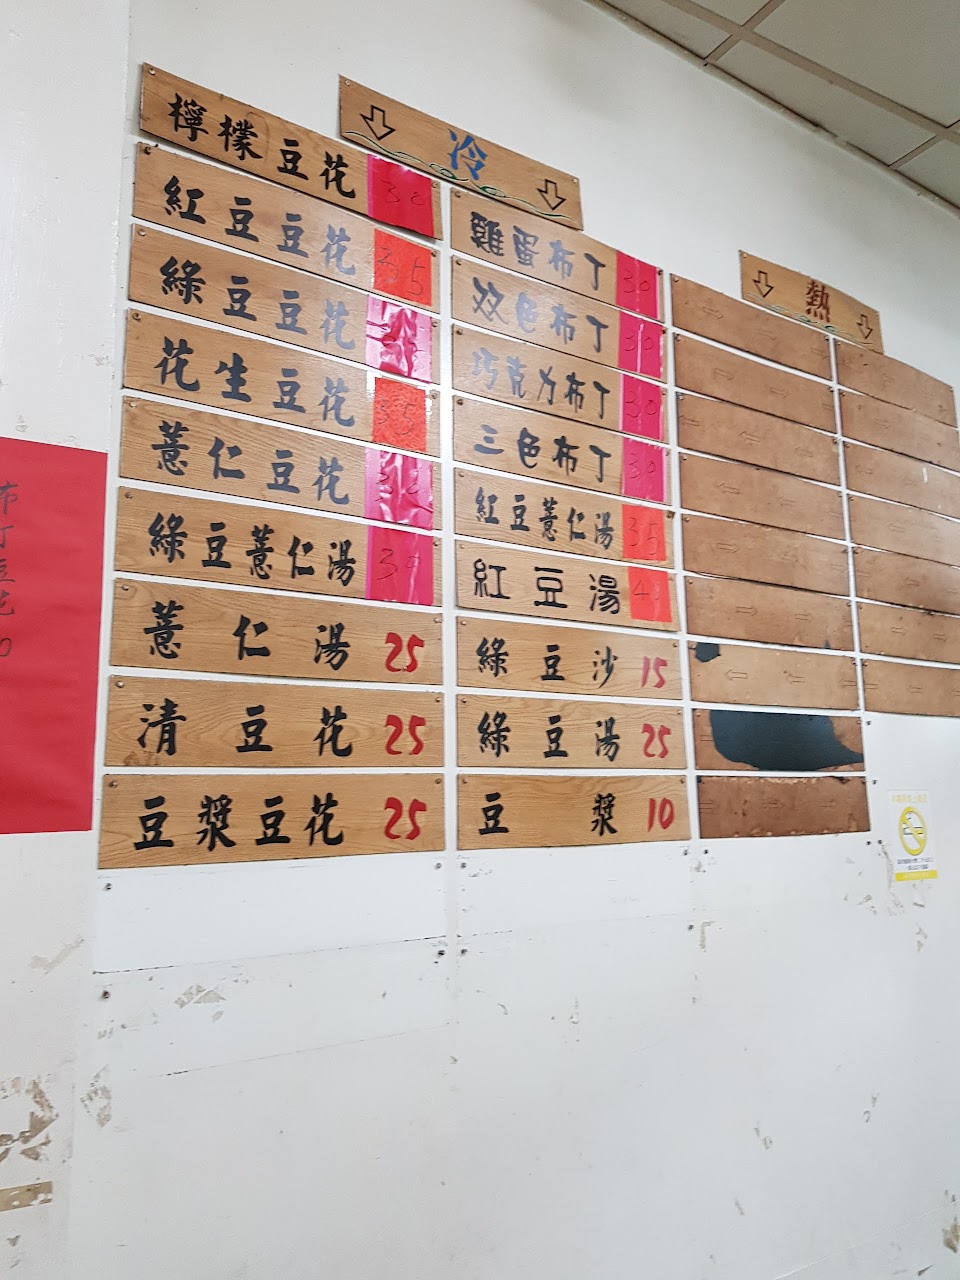 冷
檸檬豆花 30
紅豆豆花 35
綠豆豆花
花生豆花 35
薏仁豆花 30
綠豆薏仁湯 30
薏仁湯 25
清豆花 25
豆漿豆花 25
雞蛋布丁 30
双色布丁 30
巧克力布丁 30
三色布丁 30
紅豆薏仁湯 35
紅豆湯
綠豆沙 15
綠豆湯 25
豆漿 10
熱
布丁豆花